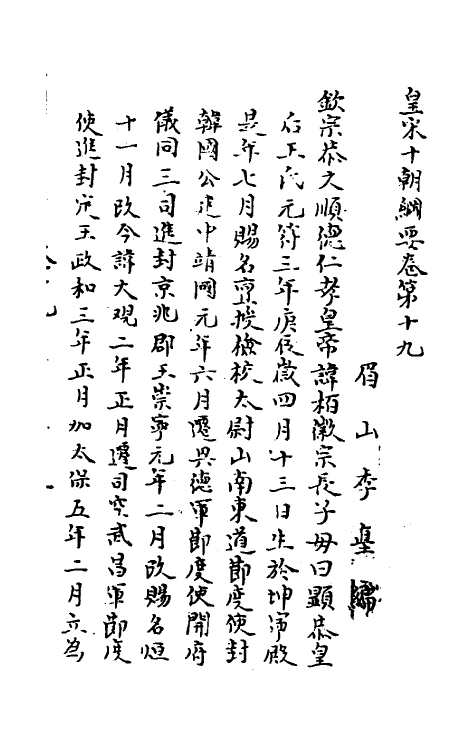 皇宋十朝綱要卷第十九
眉山李𡌴編
欽宗恭文順德仁孝皇帝諱桓徽宗長子母曰顯恭皇
后王氏元符三年庚辰歲四月十三日生於坤寧殿
是年七月賜名亶授檢校太尉山南東道節度使封
韓國公建中靖國元年六月遷興德軍節度使開府
儀同三司進封京兆郡王崇寧元年二月改賜名烜
十一月改今諱大觀二年正月遷司空武昌軍節度
使進封定王政和三年正月加太保五年二月立為